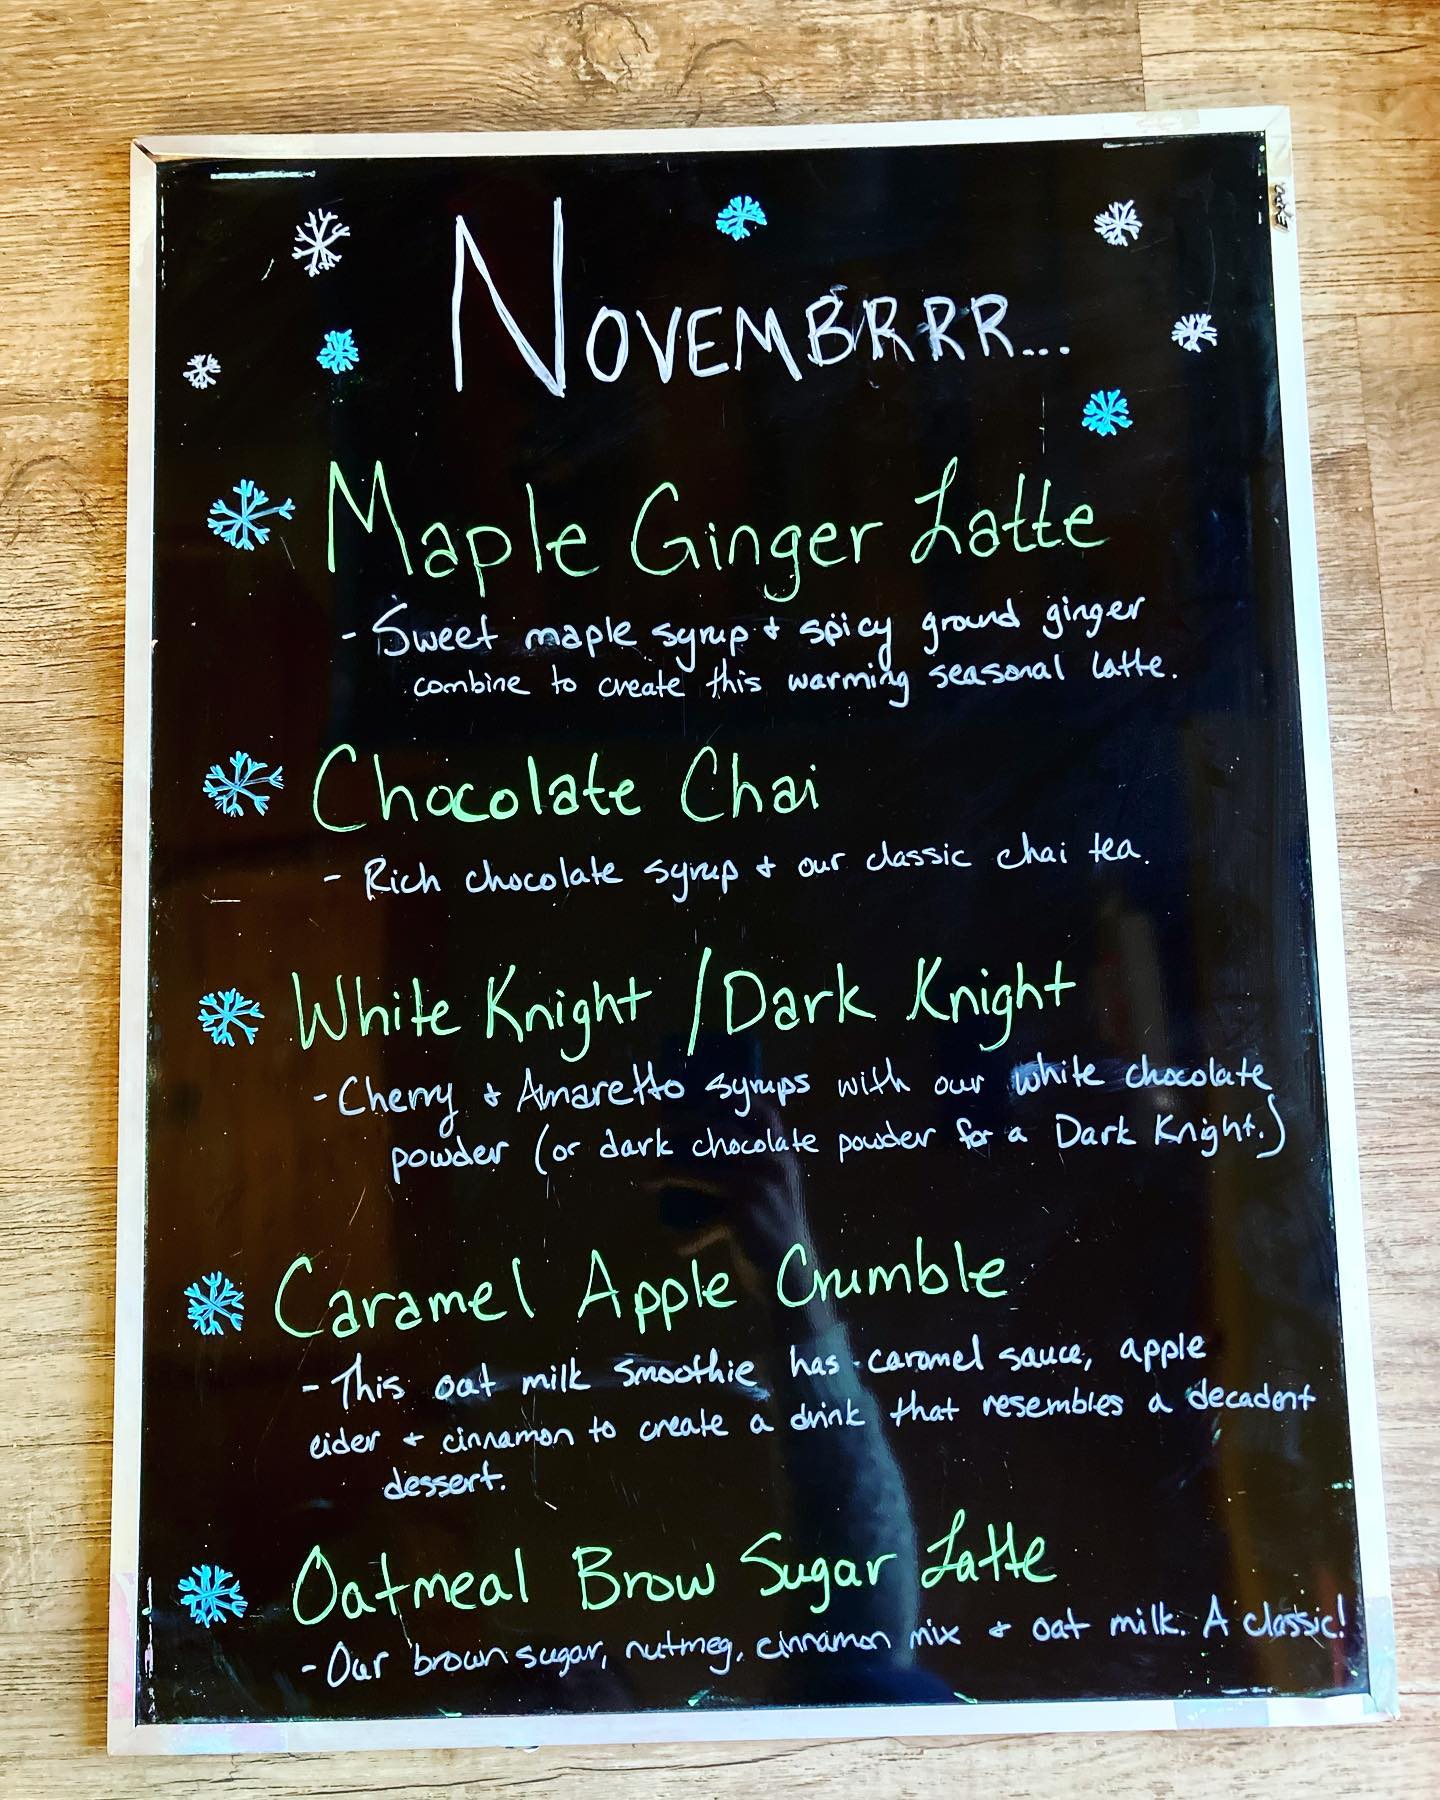 NOVEMBRRR...
EXPO
Maple Ginger Latte
- Sweet maple syrup + spicy ground ginger
combine to create this warming seasonal latte.
Chocolate Chai
- Rich chocolate syrup + our classic chai tea.
White Knight / Dark Knight
- Cherry + Amaretto syrups with our white chocolate
powder (or dark chocolate powder for a Dark Knight.)
Caramel Apple Crumble
- This oat milk smoothie has caramel sauce, apple
cider + cinnamon to create a drink that resembles a decadent
dessert.
Oatmeal Brow Sugar Latte
- Our brown sugar, nutmeg, cinnamon mix + oat milk. A classic!